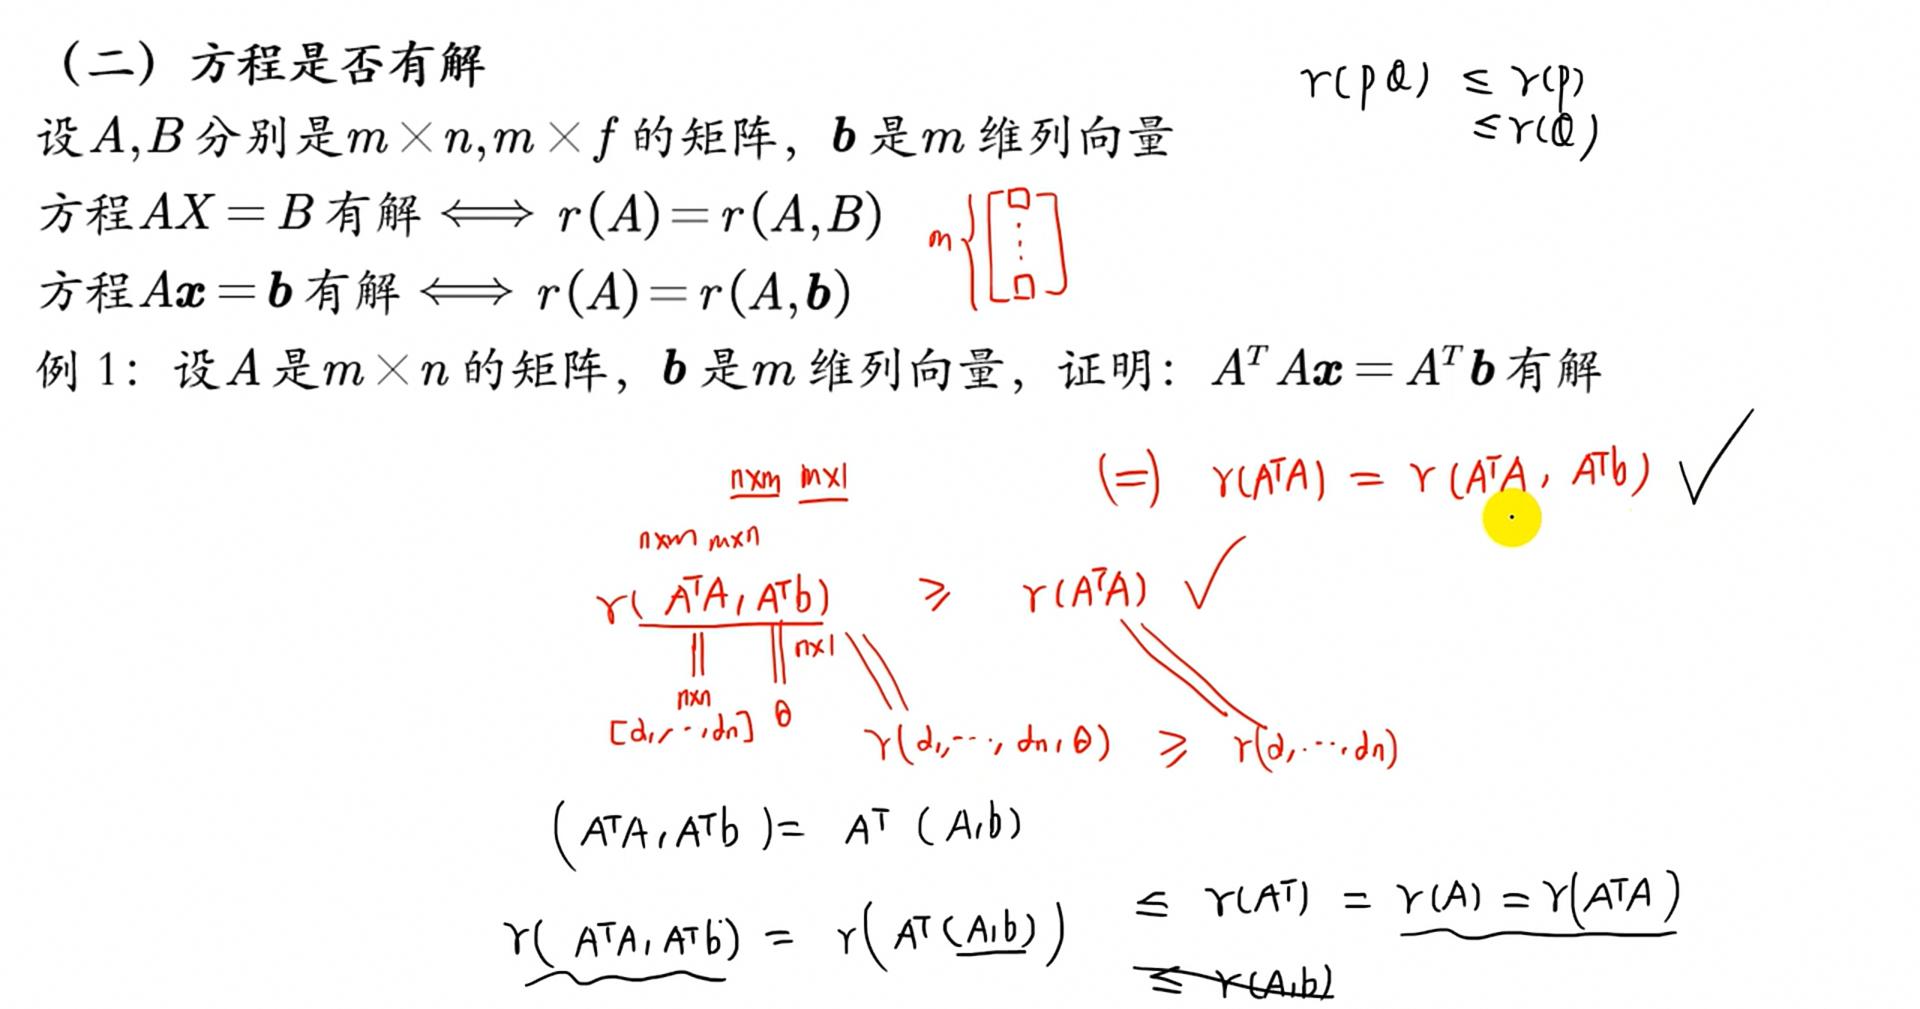 （二）方程是否有解
r(PQ) ≤ r(P)
≤ r(Q)
设A,B分别是m×n,m×f的矩阵，b是m维列向量
方程AX=B有解⟺r(A)=r(A,B)
m
方程Ax=b有解⟺r(A)=r(A,b)
例1：设A是m×n的矩阵，b是m维列向量，证明：AᵀAx=Aᵀb有解
n×m m×1
(=) r(AᵀA) = r(AᵀA, Aᵀb) ✓
n×m m×n
r(AᵀA, Aᵀb) ≥ r(AᵀA) ✓
n×1
n×n
[α₁,…,αn] θ
r(α₁,…,αn,θ) ≥ r(α₁,…,αn)
(AᵀA, Aᵀb) = Aᵀ(A,b)
r(AᵀA, Aᵀb) = r(Aᵀ(A,b)) ≤ r(Aᵀ) = r(A) = r(AᵀA)
≤ r(A,b)